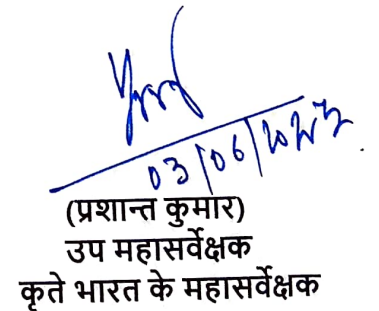 03/06/2025
(प्रशान्त कुमार)
उप महासर्वेक्षक
कृते भारत के महासर्वेक्षक